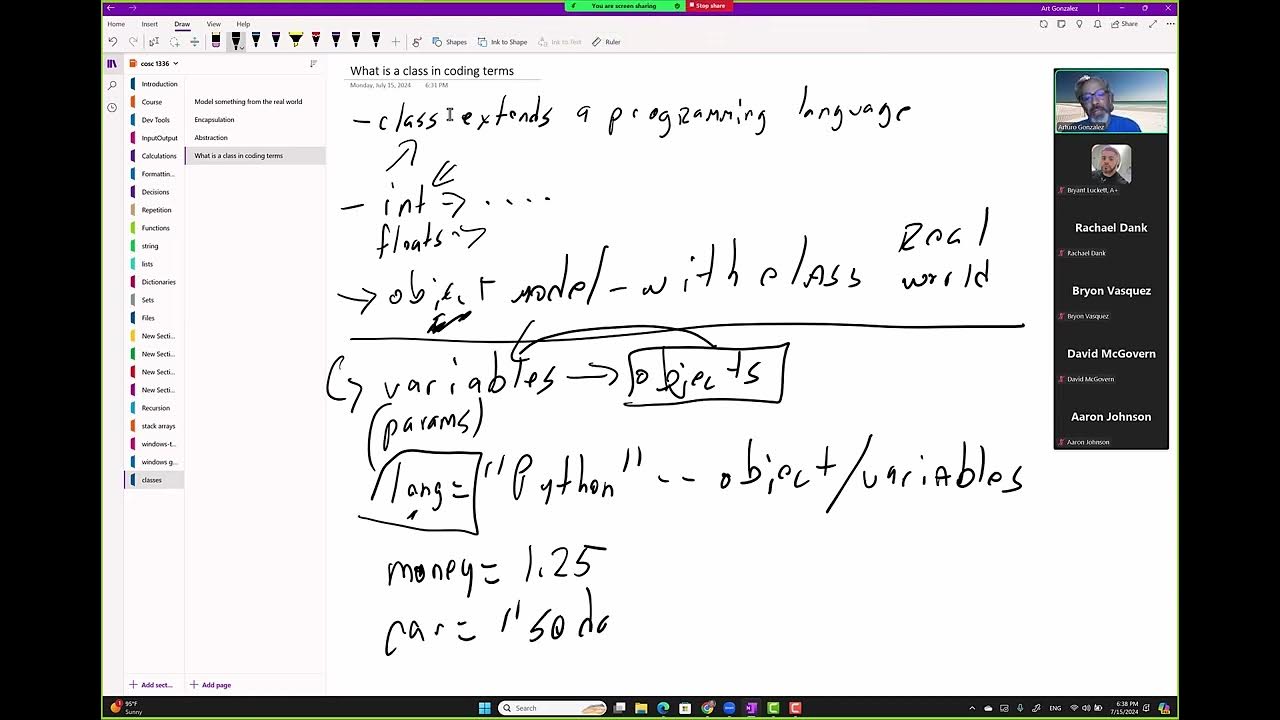 You are screen sharing
Stop share
Art Gonzalez
Home Insert Draw View Help
Share
Shapes Ink to Shape Ink to Text Ruler
cosc 1336
Introduction
Course
Dev Tools
InputOutput
Calculations
Formattin...
Decisions
Repetition
Functions
string
lists
Dictionaries
Sets
Files
New Secti...
New Secti...
New Secti...
New Secti...
Recursion
stack arrays
windows-t...
windows g...
classes
Add sect...
Model something from the real world
Encapsulation
Abstraction
What is a class in coding terms
Add page
What is a class in coding terms
Monday, July 15, 2024 6:31 PM
- class extends a programming language
- int => ....
floats =>
-> object model - with class Real world
variables -> objects
(params)
lang = "Python" -- object/variables
money = 1.25
car = "
Arturo Gonzalez
Bryant Luckett, A+
Rachael Dank
Rachael Dank
Bryon Vasquez
Bryon Vasquez
David McGovern
David McGovern
Aaron Johnson
Aaron Johnson
95°F
Sunny
Search
ENG
6:38 PM
7/15/2024